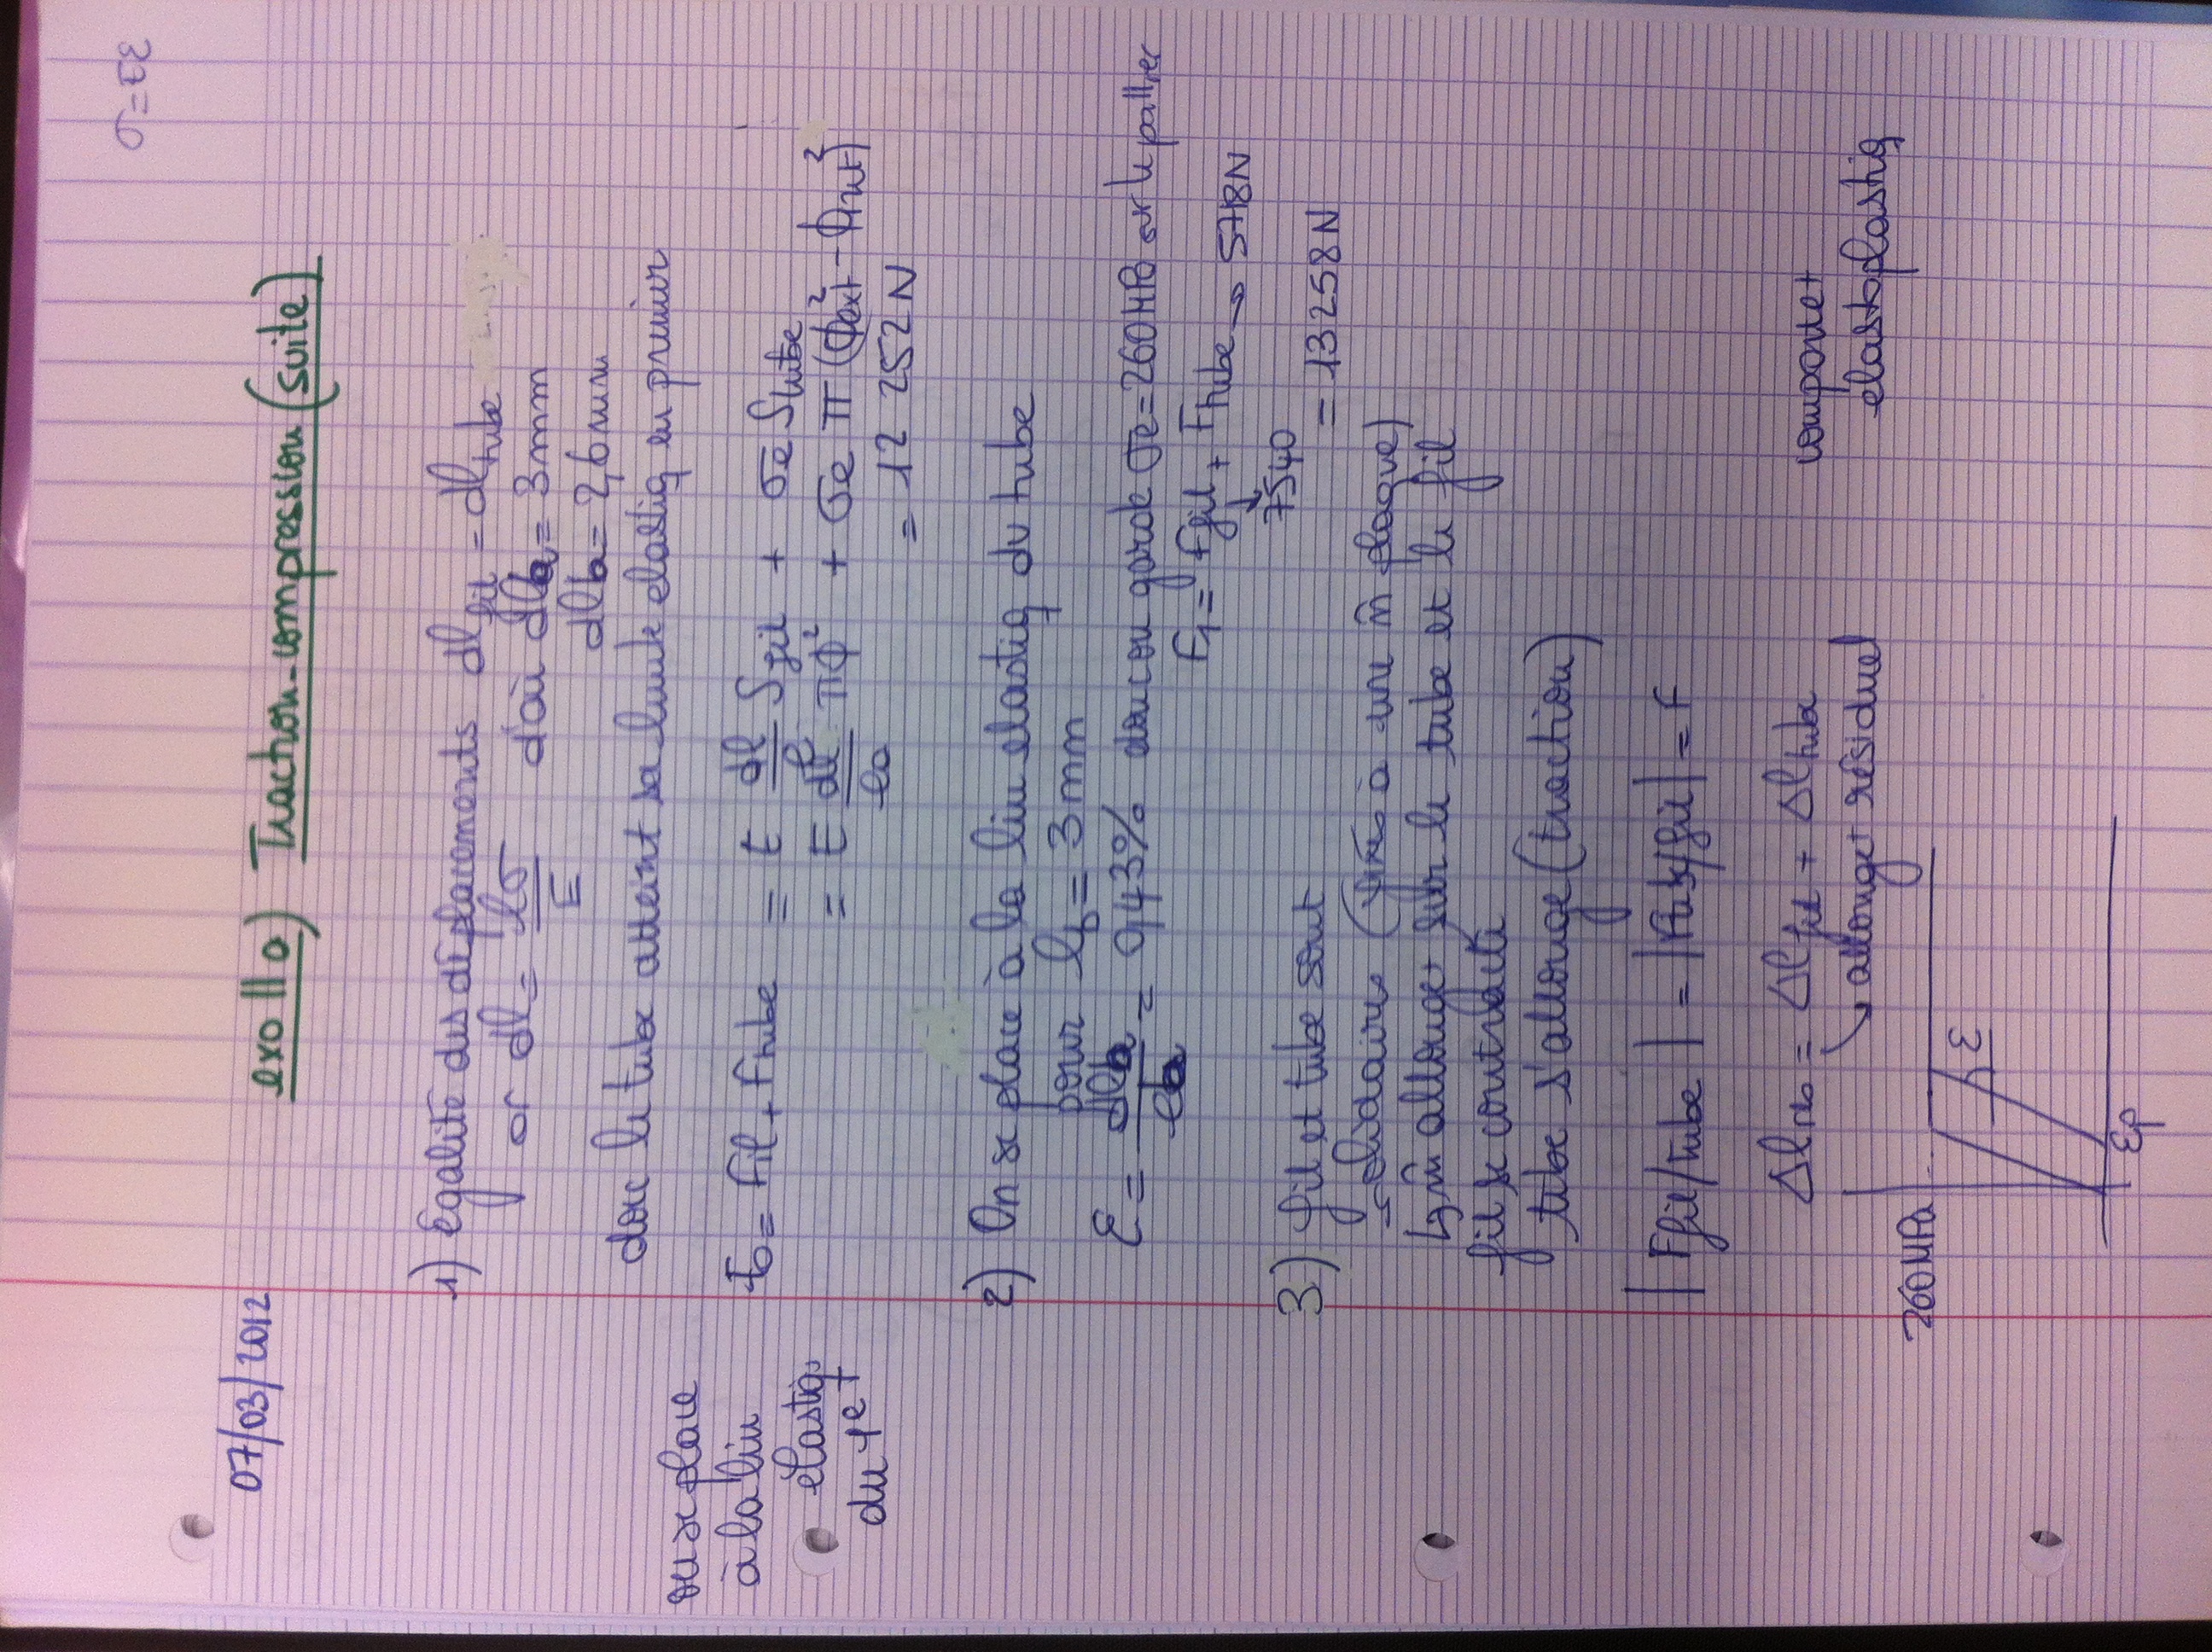 σ=Eε
07/03/2012
exo II a) Traction-compression (suite)
1) Egalité des déplacements dl fil = dl tube
or dl = lσ/E d'où dla = 3mm
dlb = 2,6mm
donc le tube atteint sa limite elastiq en premier
on se place
à la lim
élastiq
du 1er
F0 = Ffil + Ftube = E dl/l Sfil + σe Stube
= E dl/l0 πϕ² + σe π (ϕext² - ϕint²)
= 12 252N
2) On se place à la lim elastiq du tube
pour lb = 3mm
ε = = 0,43% donc on garde σe=260MPa sur le pallier
F1 = Ffil + Ftube → 5718N
↓
7540
= 13258N
3) fil et tube sont
solidaires (fixés à une m̂ plaque)
↳ m̂ allonget sur le tube et le fil
fil se contracte
tube s'allonge (traction)
|Ffil/tube| = |Ftube/fil| = F
Δlres = Δlfil + Δltube
↘ allonget résiduel
comportet
elastoplastiq
260MPa
ε
εp